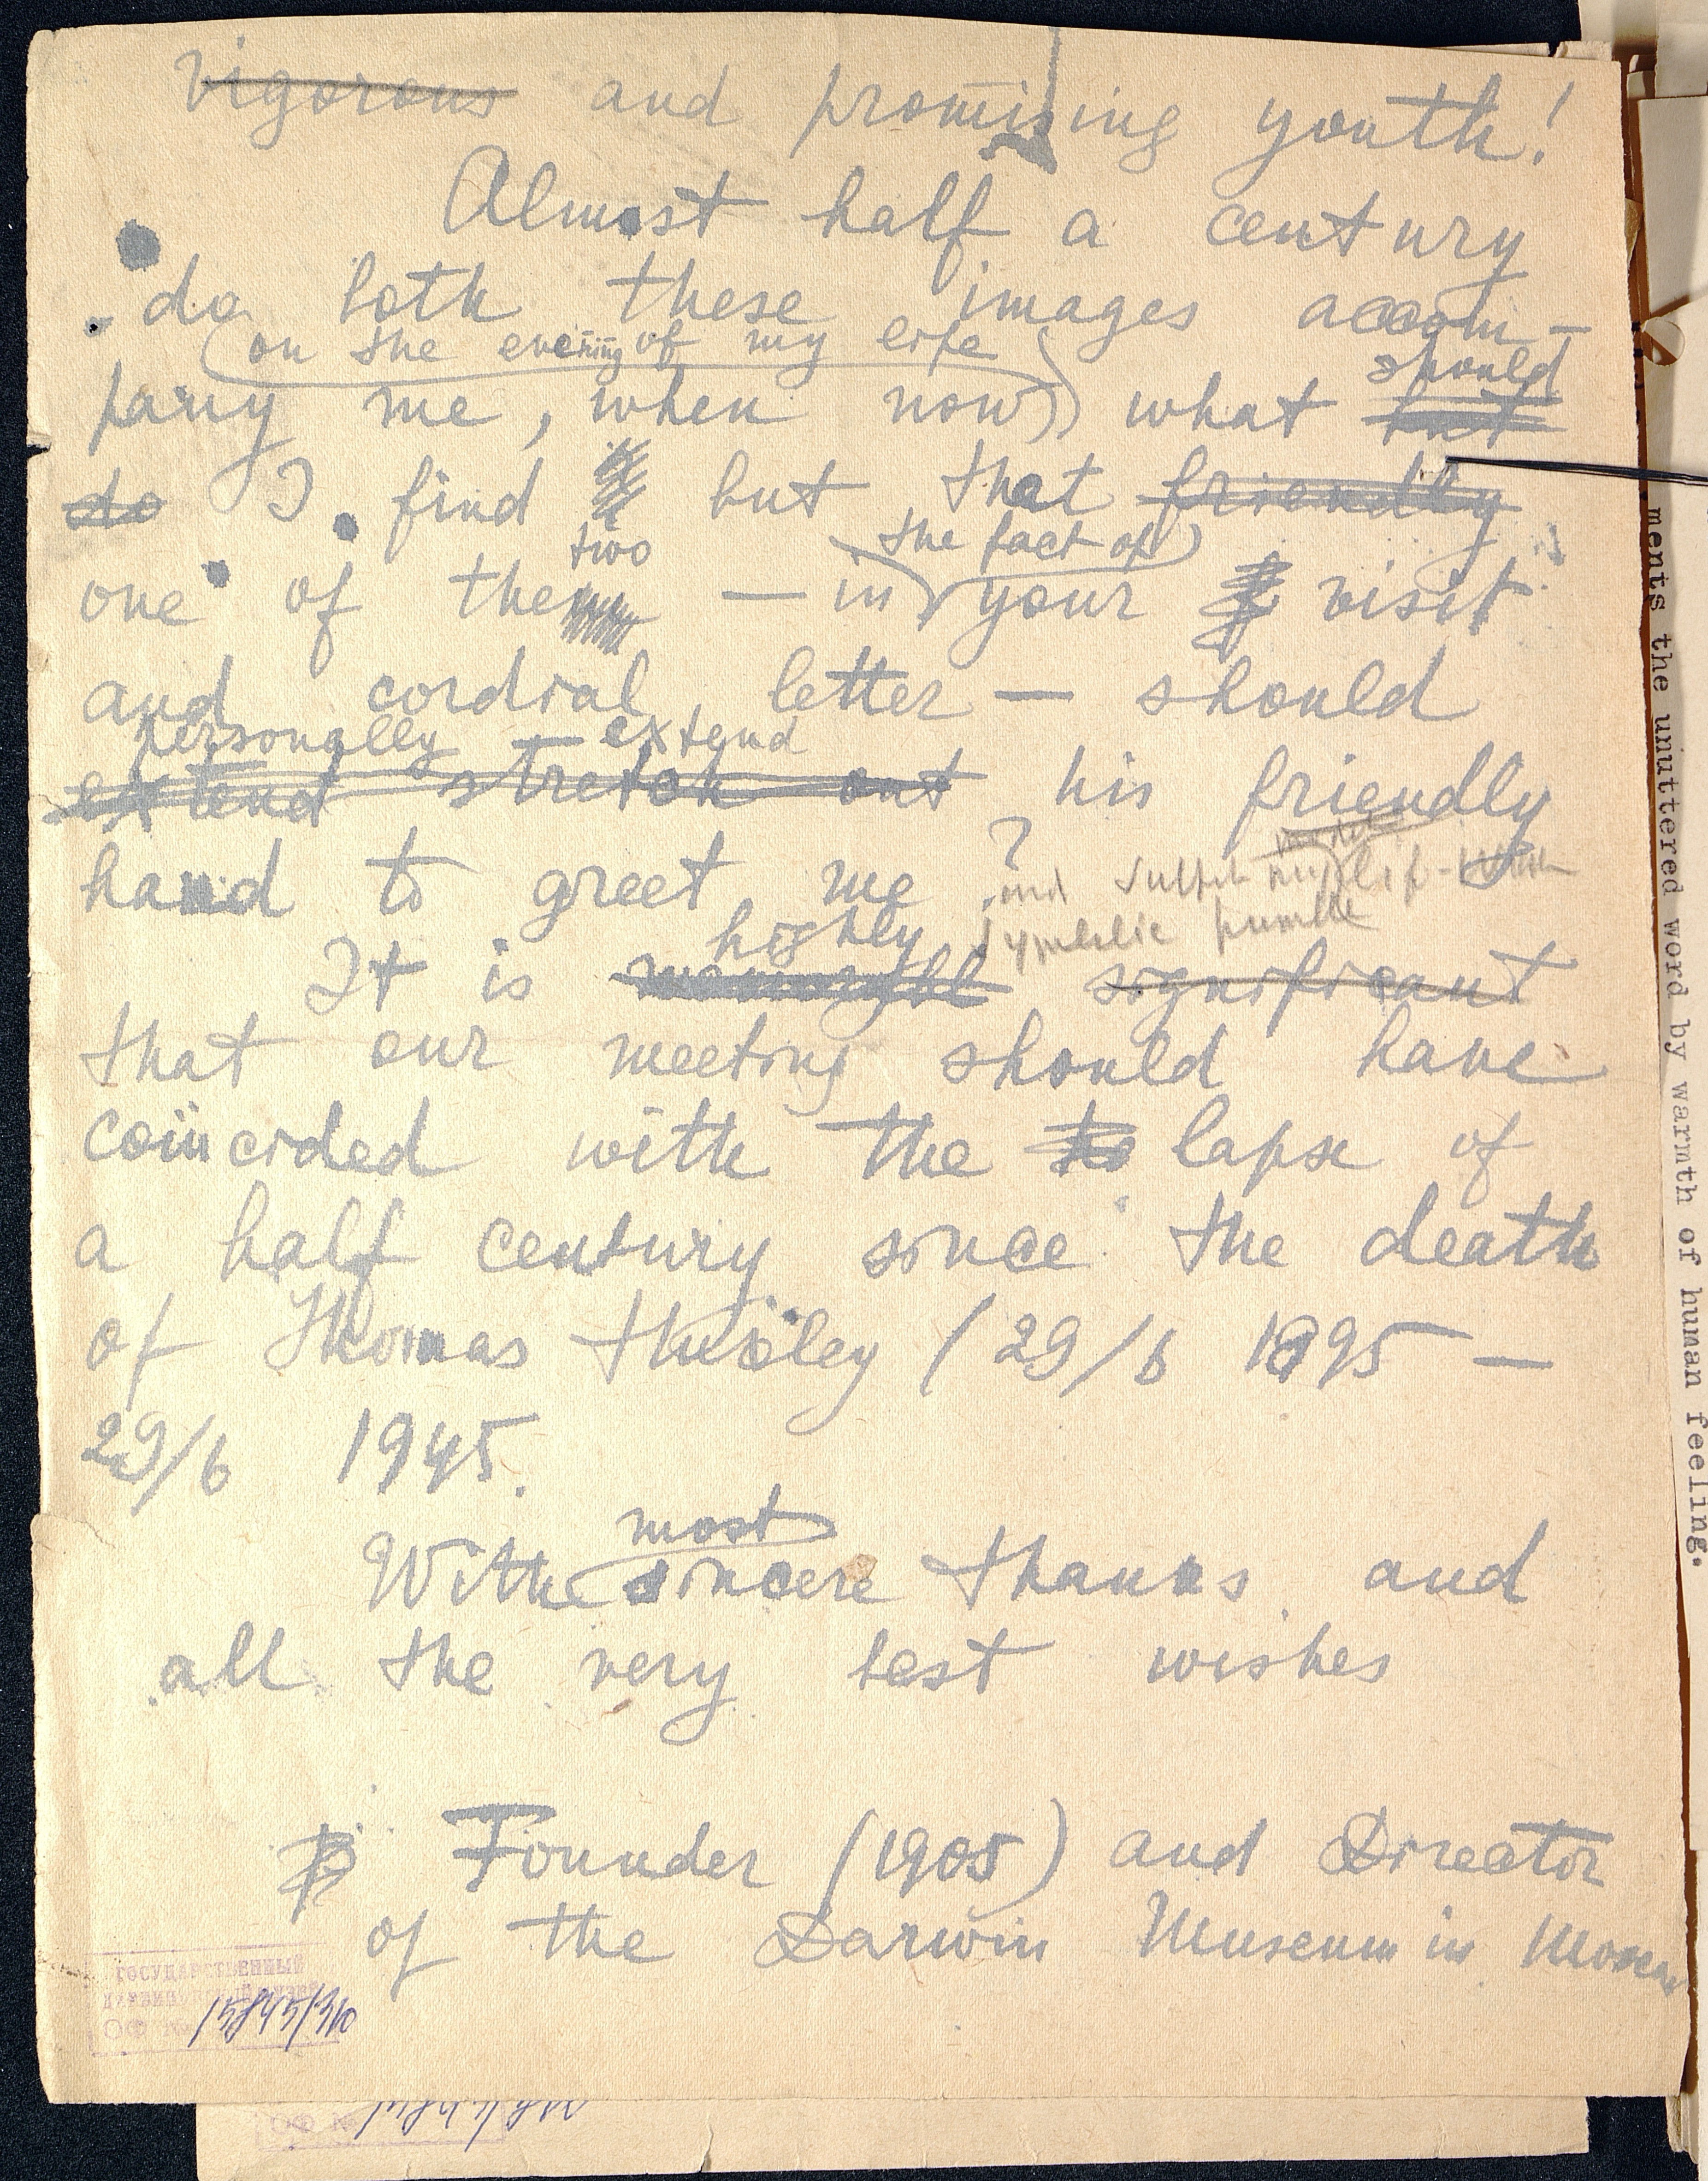 Vigorous and promising youth!
Almost half a century
do both these images accom-
(on the evening of my life)
pany me, when now) what should but
do I find but that friendly
two the fact of
one of the — in your visit
and cordial letter — should
personally extend
extend stretch out his friendly
hand to greet me?
and
symbolic
highly
It is significant
that our meeting should have
coïncided with the to lapse of
a half century since the death
of Thomas Huxley (29/6 1895 —
29/6 1945.
most
With sincere thanks and
all the very best wishes
Founder (1905) and Director
of the Darwin Museum in Moscow
ГОСУДАРСТВЕННЫЙ
ДАРВИНОВСКИЙ МУЗЕЙ
ОФ № 15845/310
ОФ №
ments the unuttered word by warmth of human feeling.